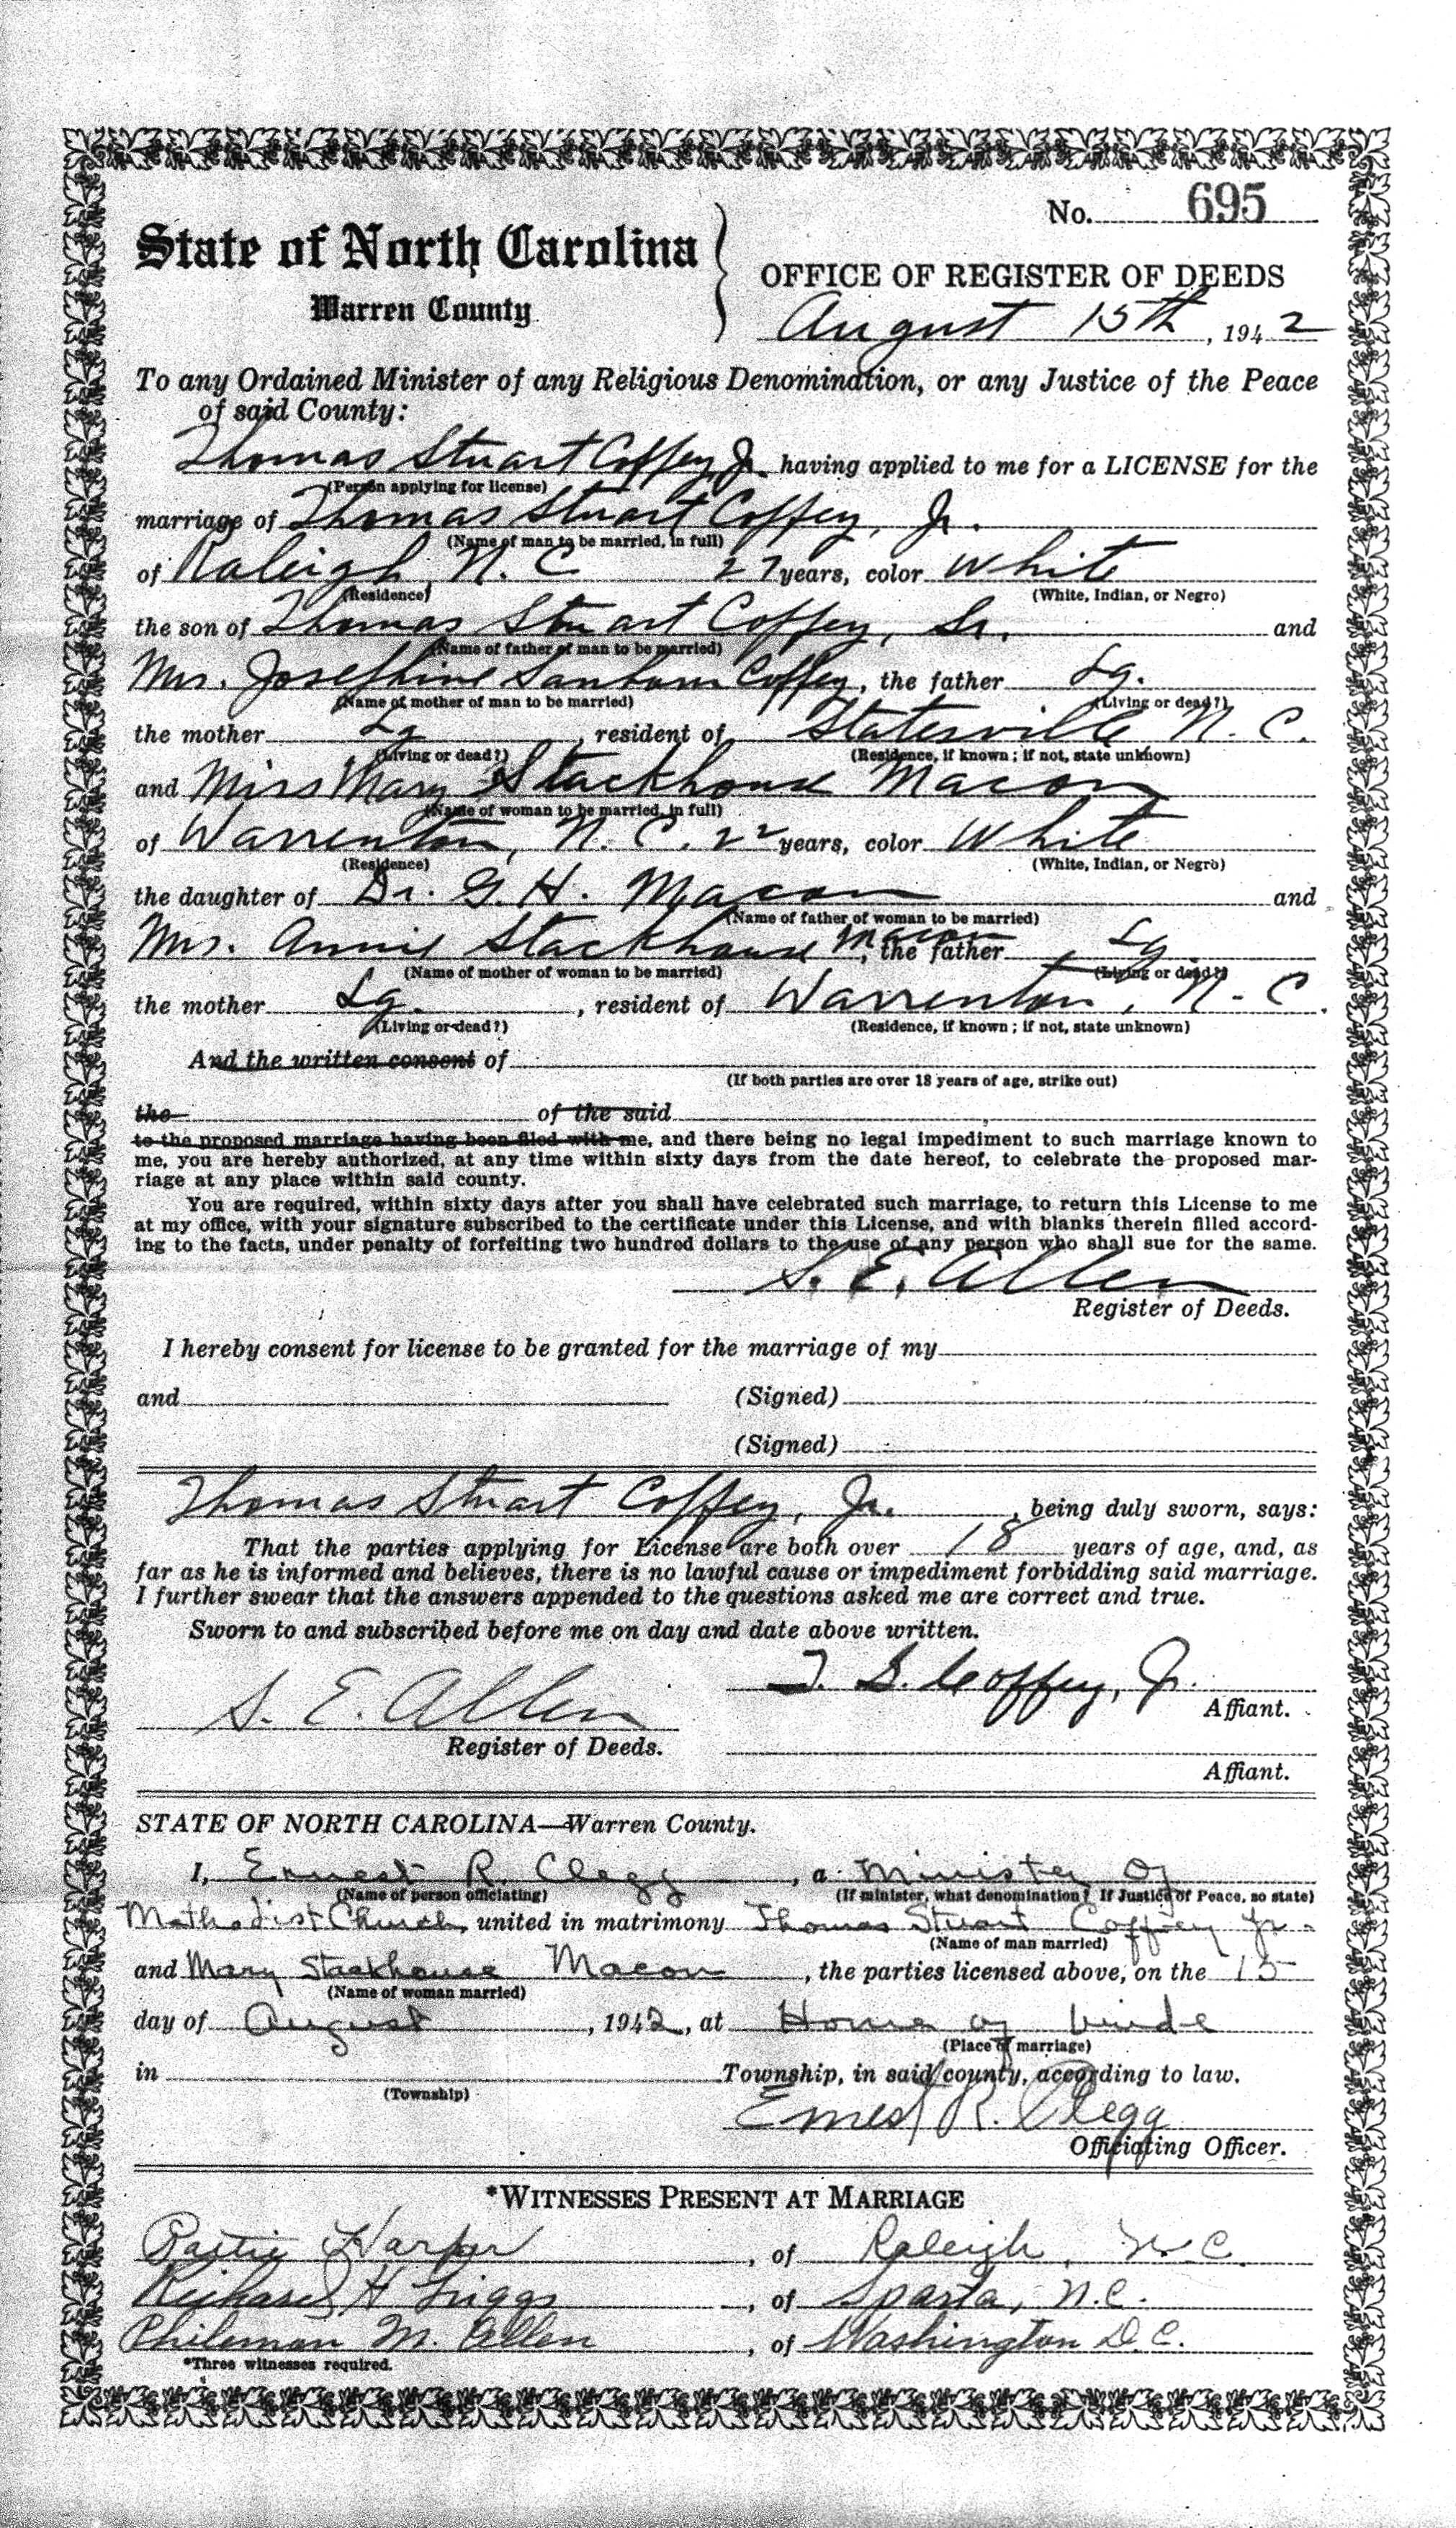 No. 695
State of North Carolina
Warren County
OFFICE OF REGISTER OF DEEDS
August 15th, 1942
To any Ordained Minister of any Religious Denomination, or any Justice of the Peace
of said County:
Thomas Stuart Coffey, Jr. having applied to me for a LICENSE for the
(Person applying for license)
marriage of Thomas Stuart Coffey, Jr.
(Name of man to be married, in full)
of Raleigh, N. C 27 years, color White
(Residence) (White, Indian, or Negro)
the son of Thomas Stuart Coffey, Sr. and
(Name of father of man to be married)
Mrs. Josephine Coffey, the father Lg.
(Name of mother of man to be married) (Living or dead?)
the mother Lg , resident of Statesville N. C.
(Living or dead?) (Residence, if known; if not, state unknown)
and Miss Mary Stackhouse Macon
(Name of woman to be married, in full)
of Warrenton, N. C. 22 years, color White
(Residence) (White, Indian, or Negro)
the daughter of Dr. G. H. Macon and
(Name of father of woman to be married)
Mrs. Annie Stackhouse Macon, the father Lg
(Name of mother of woman to be married) (Living or dead?)
the mother Lg. , resident of Warrenton, N. C.
(Living or dead?) (Residence, if known; if not, state unknown)
And the written consent of
(If both parties are over 18 years of age, strike out)
the of the said
to the proposed marriage having been filed with me, and there being no legal impediment to such marriage known to
me, you are hereby authorized, at any time within sixty days from the date hereof, to celebrate the proposed mar-
riage at any place within said county.
You are required, within sixty days after you shall have celebrated such marriage, to return this License to me
at my office, with your signature subscribed to the certificate under this License, and with blanks therein filled accord-
ing to the facts, under penalty of forfeiting two hundred dollars to the use of any person who shall sue for the same.
S. E. Allen
Register of Deeds.
I hereby consent for license to be granted for the marriage of my
and (Signed)
(Signed)
Thomas Stuart Coffey, Jr. , being duly sworn, says:
That the parties applying for License are both over 18 years of age, and, as
far as he is informed and believes, there is no lawful cause or impediment forbidding said marriage.
I further swear that the answers appended to the questions asked me are correct and true.
Sworn to and subscribed before me on day and date above written.
T. S. Coffey, Jr.
Affiant.
S. E. Allen
Register of Deeds.
Affiant.
STATE OF NORTH CAROLINA—Warren County.
I, Ernest R. Clegg , a Minister of
(Name of person officiating) (If minister, what denomination? If Justice of Peace, so state)
Methodist Church, united in matrimony Thomas Stuart Coffey Jr.
(Name of man married)
and Mary Stackhouse Macon , the parties licensed above, on the 15
(Name of woman married)
day of August , 1942, at Home of bride
(Place of marriage)
in Township, in said county, according to law.
(Township)
Ernest R. Clegg
Officiating Officer.
*WITNESSES PRESENT AT MARRIAGE
Harper , of Raleigh, N. C.
Richard H , of Sparta, N.C.
Philemon M. Allen , of Washington D.C.
*Three witnesses required.